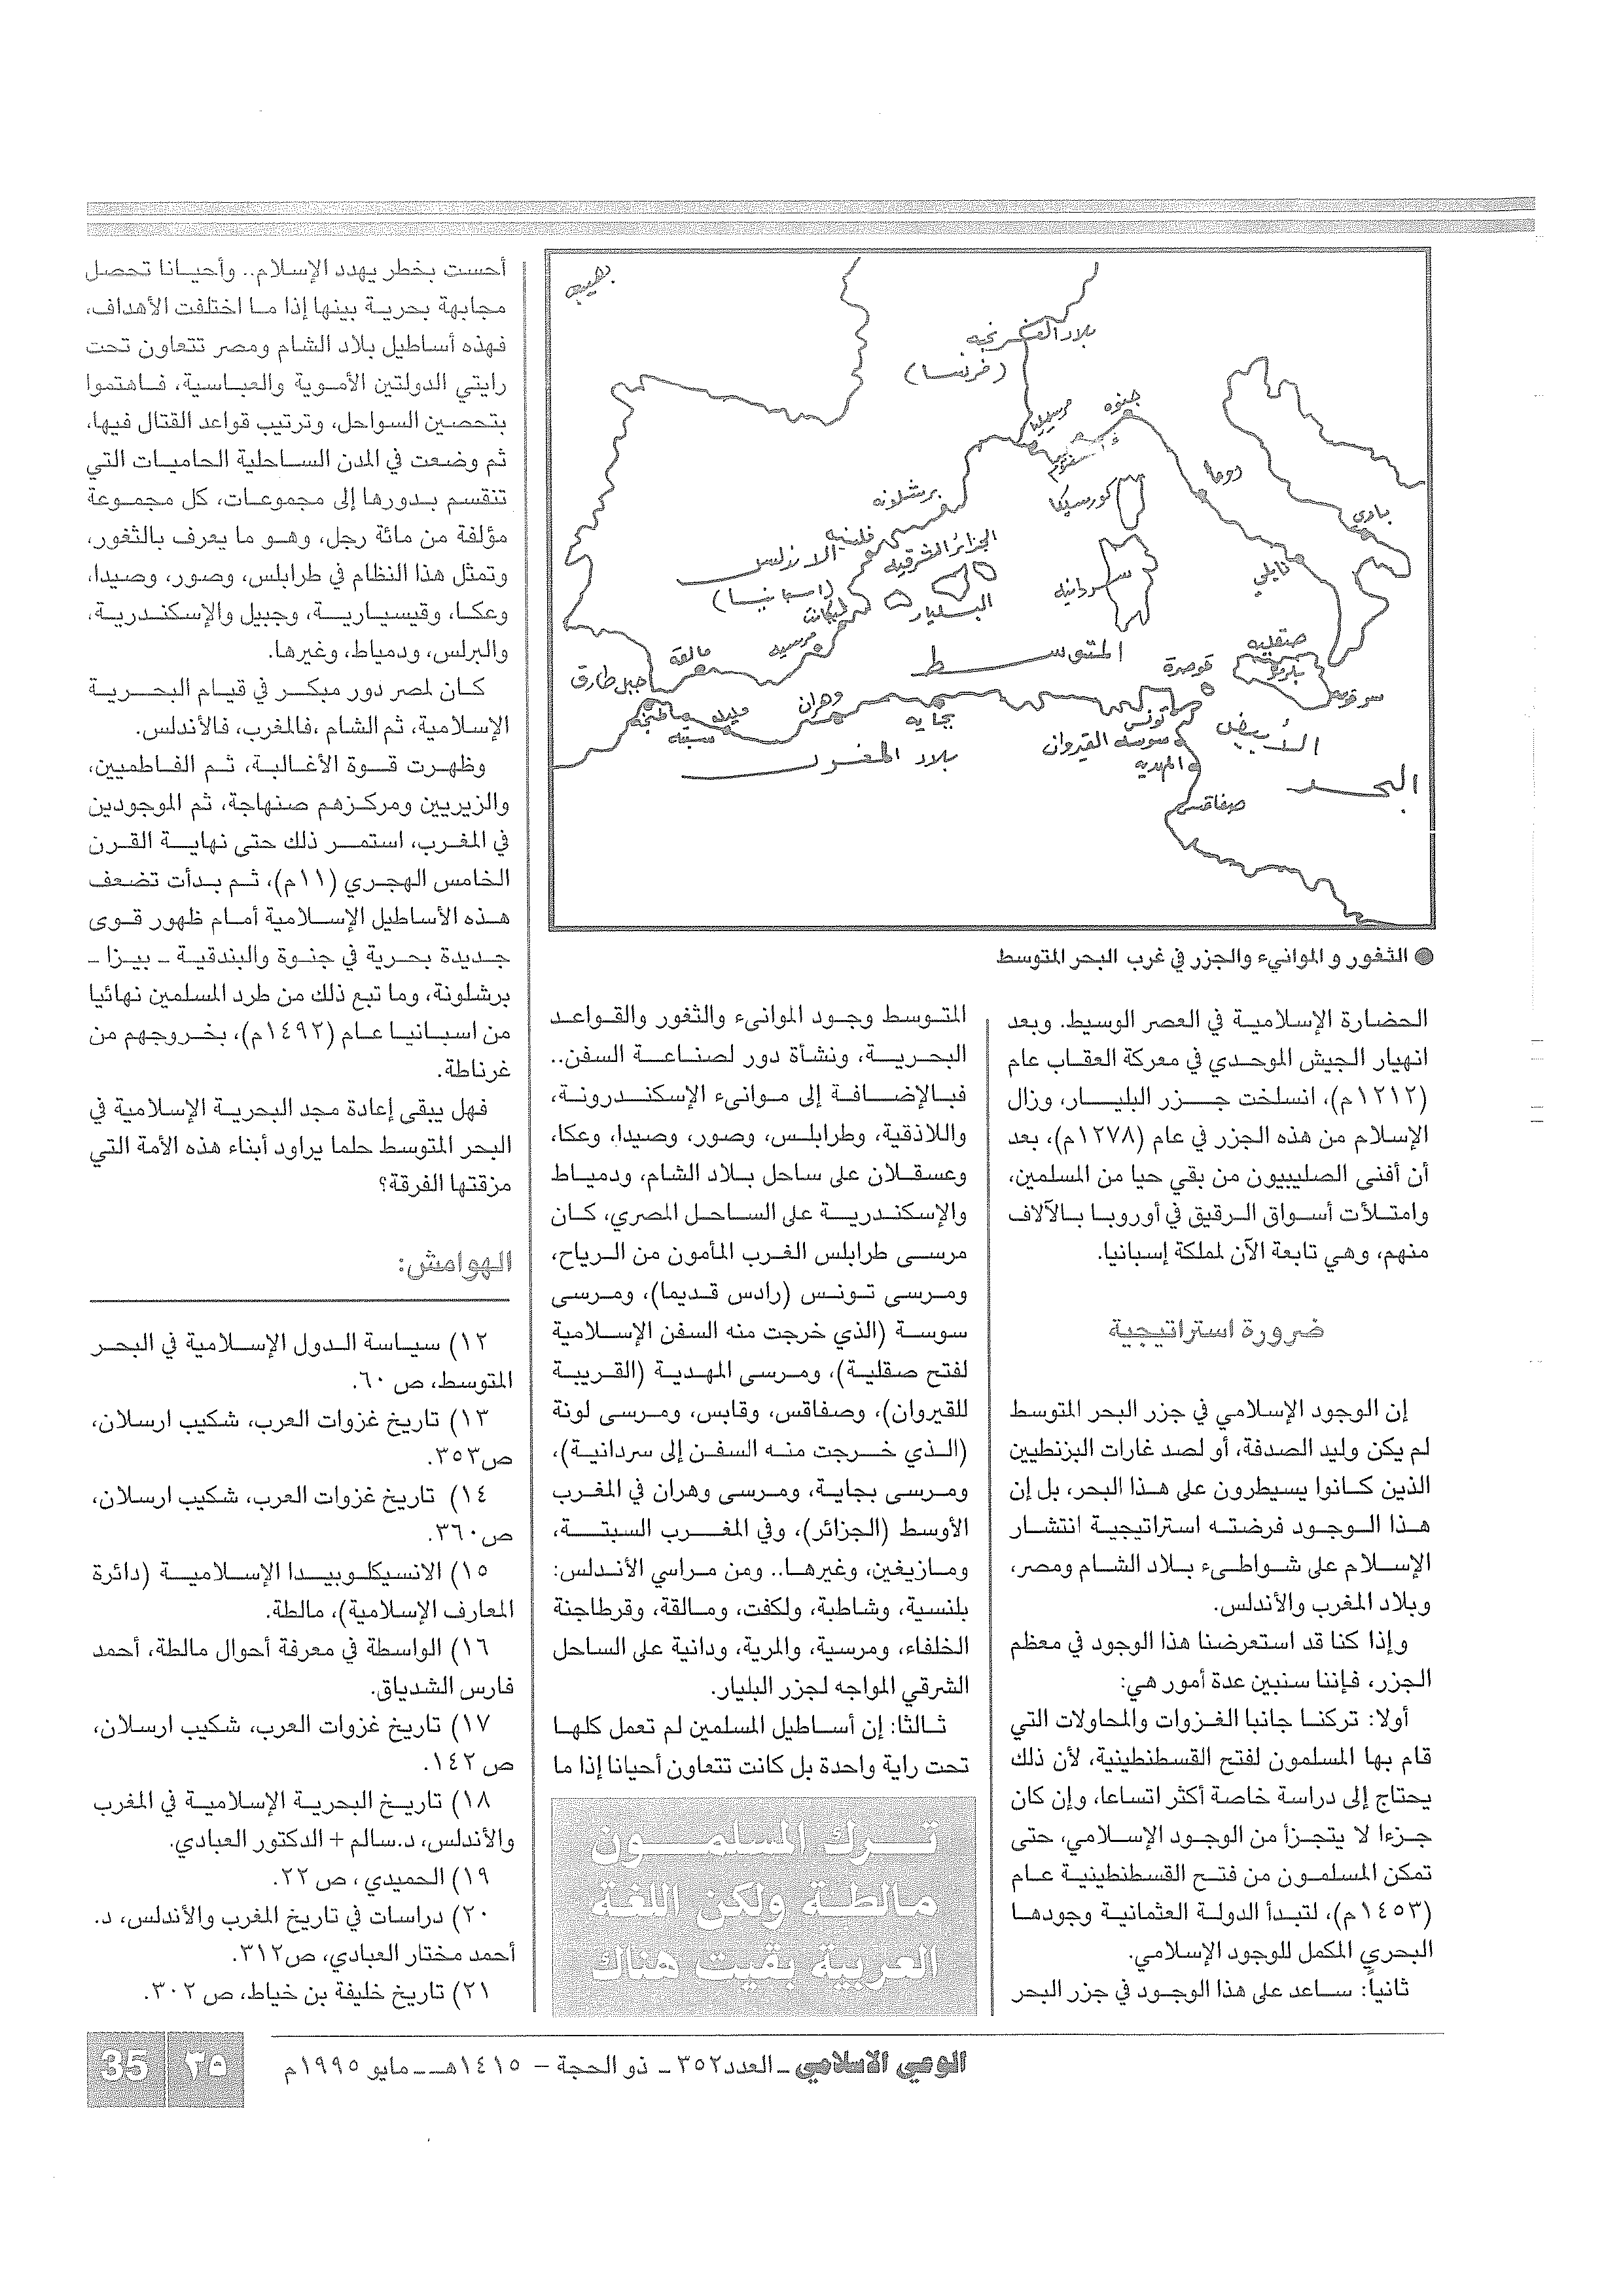 بلاد الفرنجه
(فرنسا)
جنوه
مرسيليا
روما
كورسيكا
برشلونه
باري
الجزائر الشرقيه
الاندلس
(اسبانيا)
سردانيه
نابلي
البليار
صقليه
المتوسط
مرسيه
مالقه
قوصرة
بلرمو
جبل طارق
وهران
مليله
سبته
بجايه
تونس
الأبيض
سوسه القيروان
بلاد المغرب
المهديه
البحر
صفاقس
● الثغور و الموانيء والجزر في غرب البحر المتوسط
الحضارة الإسلامية في العصر الوسيط. وبعد
انهيار الجيش الموحدي في معركة العقاب عام
(١٢١٢م)، انسلخت جزر البليار، وزال
الإسلام من هذه الجزر في عام (١٢٧٨م)، بعد
أن أفنى الصليبيون من بقي حيا من المسلمين،
وامتلأت أسواق الرقيق في أوروبا بالآلاف
منهم، وهي تابعة الآن لمملكة إسبانيا.
ضرورة استراتيجية
إن الوجود الإسلامي في جزر البحر المتوسط
لم يكن وليد الصدفة، أو لصد غارات البزنطيين
الذين كانوا يسيطرون على هذا البحر، بل إن
هذا الوجود فرضته استراتيجية انتشار
الإسلام على شواطىء بلاد الشام ومصر،
وبلاد المغرب والأندلس.
وإذا كنا قد استعرضنا هذا الوجود في معظم
الجزر، فإننا سنبين عدة أمور هي:
أولا: تركنا جانبا الغزوات والمحاولات التي
قام بها المسلمون لفتح القسطنطينية، لأن ذلك
يحتاج إلى دراسة خاصة أكثر اتساعا، وإن كان
جزءا لا يتجزأ من الوجود الإسلامي، حتى
تمكن المسلمون من فتح القسطنطينية عام
(١٤٥٣م)، لتبدأ الدولة العثمانية وجودها
البحري المكمل للوجود الإسلامي.
ثانياً: ساعد على هذا الوجود في جزر البحر
المتوسط وجود الموانىء والثغور والقواعد
البحرية، ونشأة دور لصناعة السفن..
فبالإضافة إلى موانىء الإسكندرونة،
واللاذقية، وطرابلس، وصور، وصيدا، وعكا،
وعسقلان على ساحل بلاد الشام، ودمياط
والإسكندرية على الساحل المصري، كان
مرسى طرابلس الغرب المأمون من الرياح،
ومرسى تونس (رادس قديما)، ومرسى
سوسة (الذي خرجت منه السفن الإسلامية
لفتح صقلية)، ومرسى المهدية (القريبة
للقيروان)، وصفاقس، وقابس، ومرسى لونة
(الذي خرجت منه السفن إلى سردانية)،
ومرسى بجاية، ومرسى وهران في المغرب
الأوسط (الجزائر)، وفي المغرب السبتة،
ومازيغين، وغيرها.. ومن مراسي الأندلس:
بلنسية، وشاطبة، ولكفت، ومالقة، وقرطاجنة
الخلفاء، ومرسية، والمرية، ودانية على الساحل
الشرقي المواجه لجزر البليار.
ثالثا: إن أساطيل المسلمين لم تعمل كلها
تحت راية واحدة بل كانت تتعاون أحيانا إذا ما
ترك المسلمون
مالطة ولكن اللغة
العربية بقيت هناك
أحست بخطر يهدد الإسلام.. وأحيانا تحصل
مجابهة بحرية بينها إذا ما اختلفت الأهداف،
فهذه أساطيل بلاد الشام ومصر تتعاون تحت
رايتي الدولتين الأموية والعباسية، فاهتموا
بتحصين السواحل، وترتيب قواعد القتال فيها،
ثم وضعت في المدن الساحلية الحاميات التي
تنقسم بدورها إلى مجموعات، كل مجموعة
مؤلفة من مائة رجل، وهو ما يعرف بالثغور،
وتمثل هذا النظام في طرابلس، وصور، وصيدا،
وعكا، وقيسيارية، وجبيل والإسكندرية،
والبرلس، ودمياط، وغيرها.
كان لمصر دور مبكر في قيام البحرية
الإسلامية، ثم الشام ،فالمغرب، فالأندلس.
وظهرت قوة الأغالبة، ثم الفاطميين،
والزيريين ومركزهم صنهاجة، ثم الموجودين
في المغرب، استمر ذلك حتى نهاية القرن
الخامس الهجري (١١م)، ثم بدأت تضعف
هذه الأساطيل الإسلامية أمام ظهور قوى
جديدة بحرية في جنوة والبندقية ـ بيزا ـ
برشلونة، وما تبع ذلك من طرد المسلمين نهائيا
من اسبانيا عام (١٤٩٢م)، بخروجهم من
غرناطة.
فهل يبقى إعادة مجد البحرية الإسلامية في
البحر المتوسط حلما يراود أبناء هذه الأمة التي
مزقتها الفرقة؟
الهوامش:
١٢) سياسة الدول الإسلامية في البحر
المتوسط، ص ٦٠.
١٣) تاريخ غزوات العرب، شكيب ارسلان،
ص٣٥٣.
١٤) تاريخ غزوات العرب، شكيب ارسلان،
ص٣٦٠.
١٥) الانسيكلوبيدا الإسلامية (دائرة
المعارف الإسلامية)، مالطة.
١٦) الواسطة في معرفة أحوال مالطة، أحمد
فارس الشدياق.
١٧) تاريخ غزوات العرب، شكيب ارسلان،
ص ١٤٢.
١٨) تاريخ البحرية الإسلامية في المغرب
والأندلس، د.سالم + الدكتور العبادي.
١٩) الحميدي ، ص ٢٢.
٢٠) دراسات في تاريخ المغرب والأندلس، د.
أحمد مختار العبادي، ص٣١٢.
٢١) تاريخ خليفة بن خياط، ص ٣٠٢.
الوعي الاسلامي ـ العدد ٣٥٢ ـ ذو الحجة – ١٤١٥هـ ـ مايو ١٩٩٥م
٣٥ 35